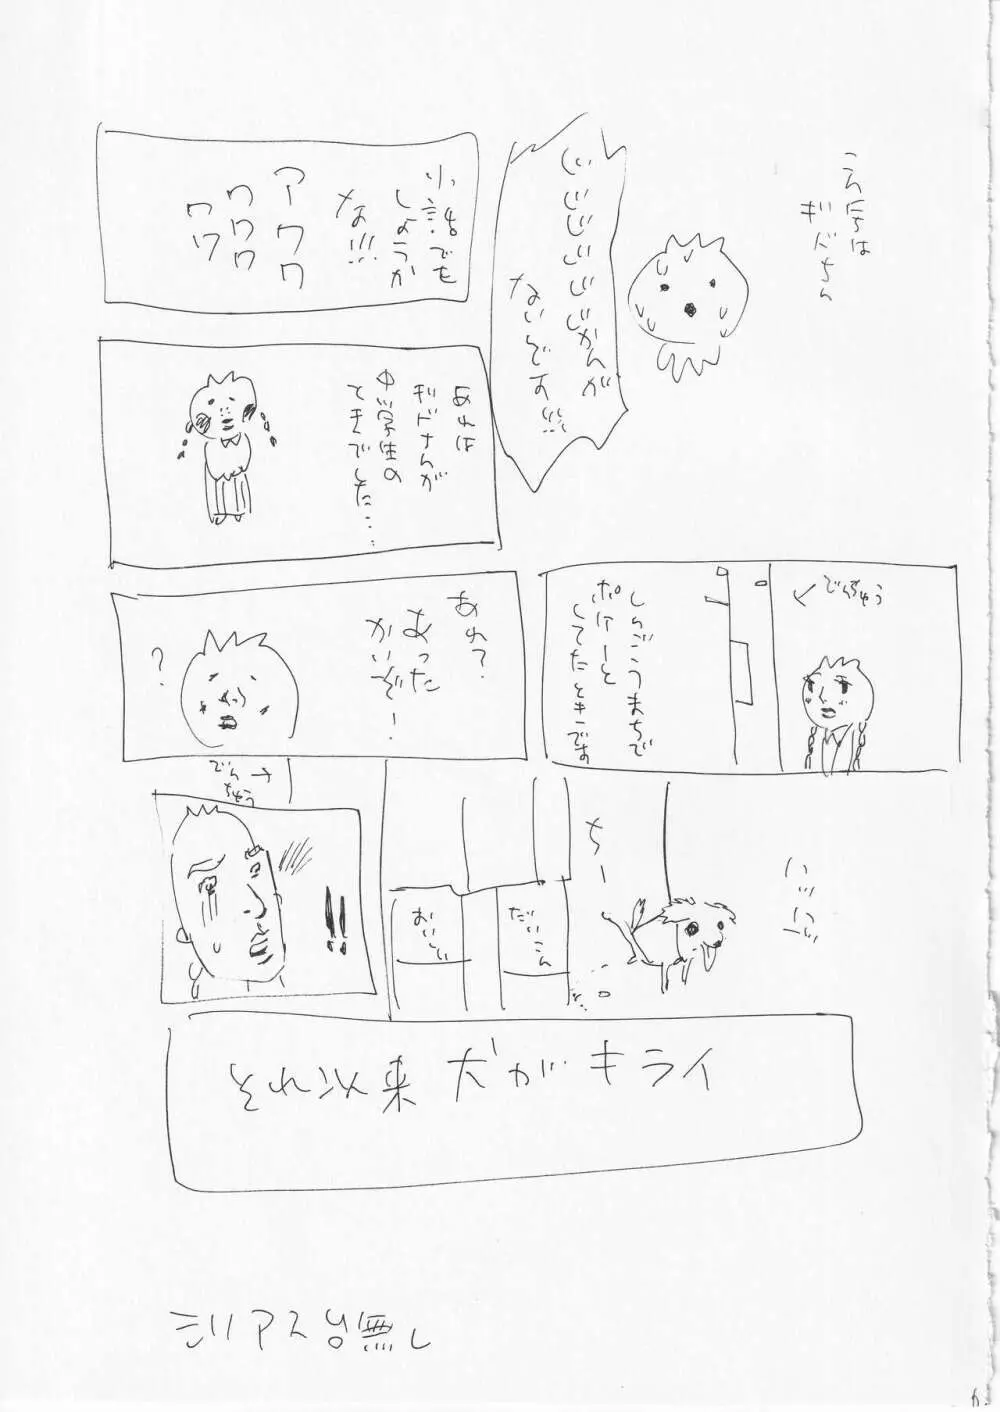 こんちは
ギドちん
じじじじじじじかんが
ないんです!!!
小話でも
しようか
な!!!
アーワワ
ワワワ
ワワ
あれは
ギドちんが
中学生の
ときでした……
でんちゅう
しんごうまちで
ポけーと
してたときです
あれ?
あった
かいぞ!
?
ハッハッ
ちー
だいこん
おいしい
でん
ちゅう
!!
それ以来 犬がキライ
シリアス台無し